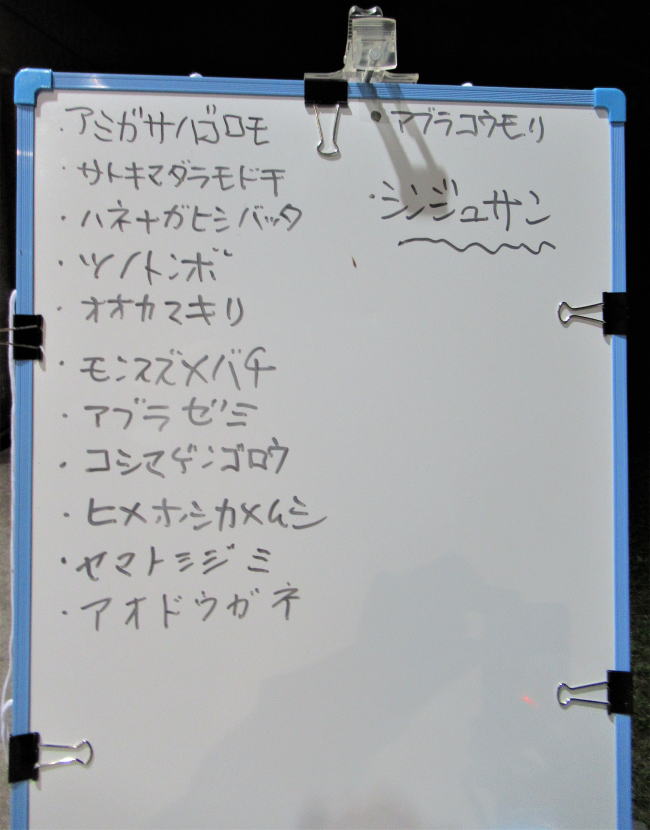 ・アミガサハゴロモ
・サトキマダラモドキ
・ハネナガヒシバッタ
・ツノトンボ
・オオカマキリ
・モンスズメバチ
・アブラゼミ
・コシマゲンゴロウ
・ヒメホシカメムシ
・ヤマトシジミ
・アオドウガネ
・アブラコウモリ
・シンジュサン